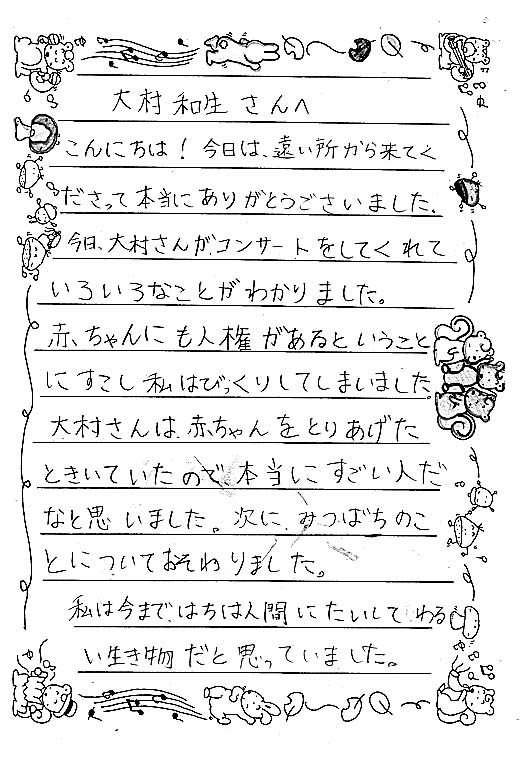 大村和生さんへ
こんにちは！今日は、遠い所から来てく
ださって本当にありがとうございました。
今日、大村さんがコンサートをしてくれて
いろいろなことがわかりました。
赤ちゃんにも人権があるということ
にすこし私はびっくりしてしまいました。
大村さんは、赤ちゃんをとりあげた
ときいていたので、本当にすごい人だ
なと思いました。次に、みつばちのこ
とについておそわりました。
私は今まで、はちは人間にたいしてわる
い生き物だと思っていました。